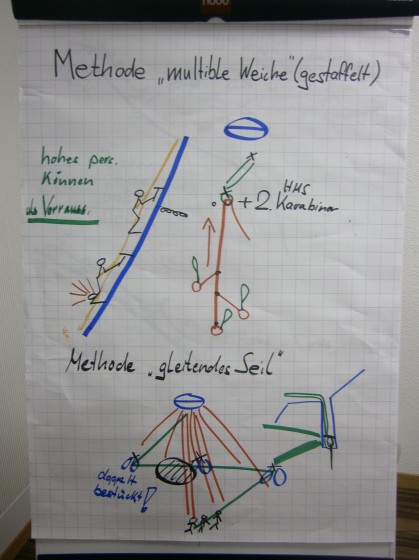 nobo
Methode „multible Weiche" (gestaffelt)
hohes pers.
Können
als Vorrauss.
+ 2. HMS
Karabiner
Methode „gleitendes Seil"
doppelt
bestückt!